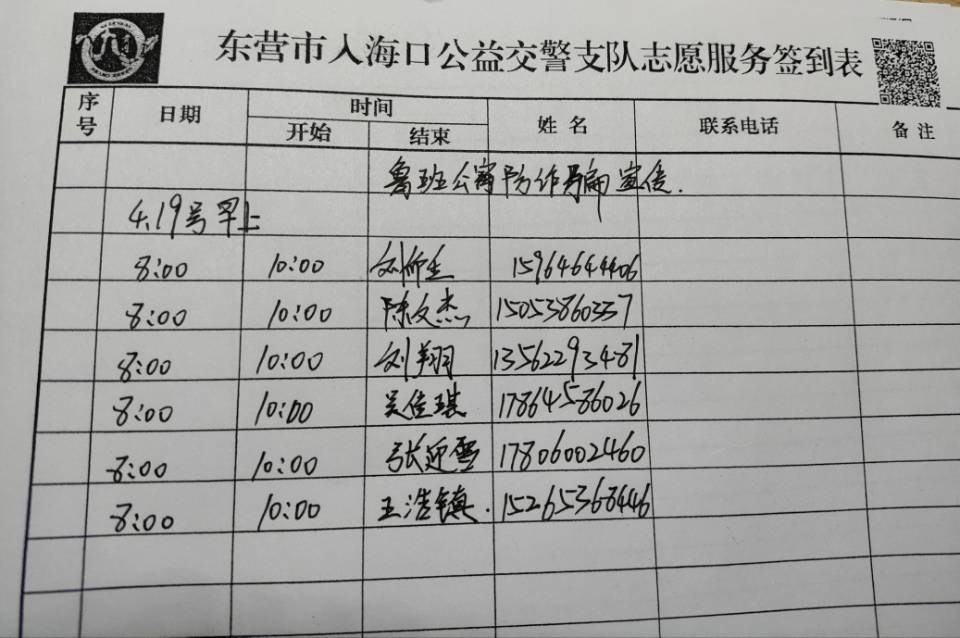 东营市入海口公益交警支队志愿服务签到表
序号 日期 时间 姓名 联系电话 备注
开始 结束
鲁班公寓防诈骗宣传.
4.19号早上
8:00 10:00 刘帅 15964644406
8:00 10:00 陈文杰 15053860337
8:00 10:00 刘翔 13562293481
8:00 10:00 吴佳琪 17864586026
8:00 10:00 张迎雪 17806002460
8:00 10:00 王浩镇. 15265368446